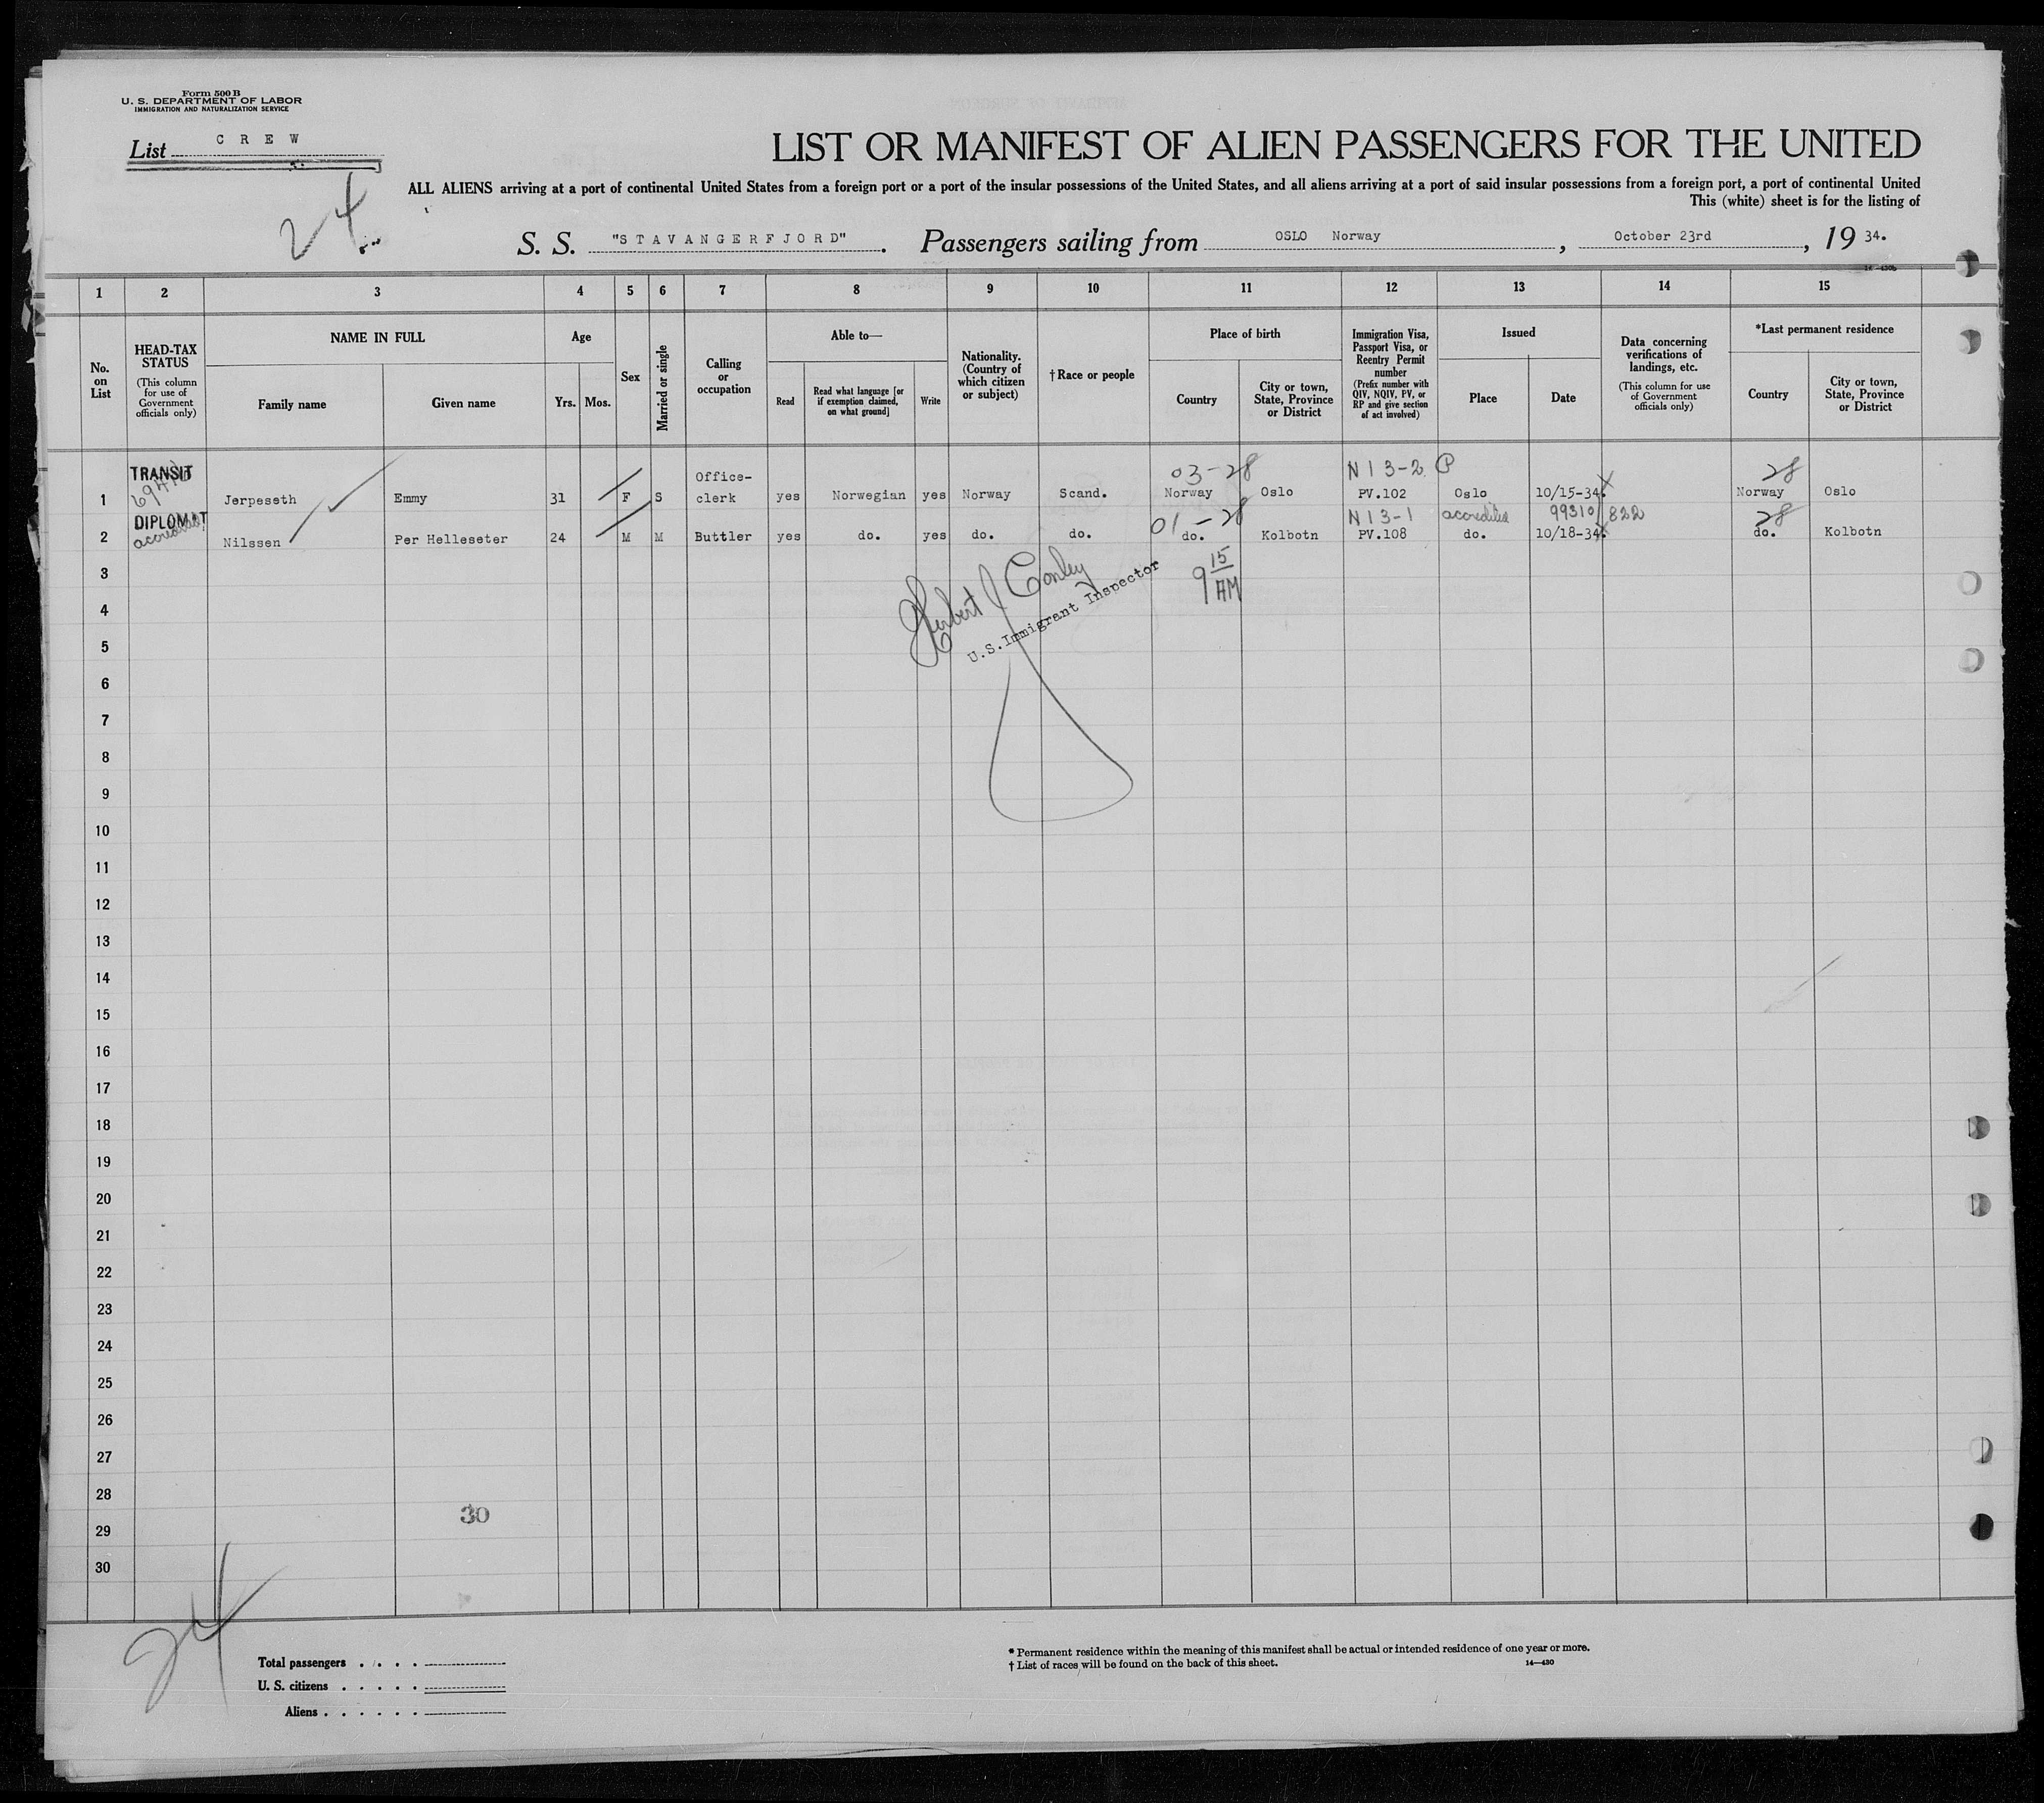 Form 500 B
U. S. DEPARTMENT OF LABOR
IMMIGRATION AND NATURALIZATION SERVICE
List CREW
24
LIST OR MANIFEST OF ALIEN PASSENGERS FOR THE UNITED
ALL ALIENS arriving at a port of continental United States from a foreign port or a port of the insular possessions of the United States, and all aliens arriving at a port of said insular possessions from a foreign port, a port of continental United
This (white) sheet is for the listing of
S. S. "STAVANGERFJORD". Passengers sailing from OSLO Norway, October 23rd, 19 34.
1 2 3 4 5 6 7 8 9 10 11 12 13 14 15
No. on List
HEAD-TAX STATUS
(This column for use of Government officials only)
NAME IN FULL
Family name
Given name
Age
Yrs. Mos.
Sex
Married or single
Calling or occupation
Able to—
Read
Read what language [or if exemption claimed, on what ground]
Write
Nationality. (Country of which citizen or subject)
† Race or people
Place of birth
Country
City or town, State, Province or District
Immigration Visa, Passport Visa, or Reentry Permit number
(Prefix number with QIV, NQIV, PV, or RP and give section of act involved)
Issued
Place
Date
Data concerning verifications of landings, etc.
(This column for use of Government officials only)
*Last permanent residence
Country
City or town, State, Province or District
TRANSIT Office- 03-28 N 13-2 P 28
1 Jerpeseth Emmy 31 F S clerk yes Norwegian yes Norway Scand. Norway Oslo PV.102 Oslo 10/15-34. Norway Oslo
DIPLOMAT accredited 01-28 N 13-1 accredited 99310/822 28
2 Nilssen Per Helleseter 24 M M Buttler yes do. yes do. do. do. Kolbotn PV.108 do. 10/18-34. do. Kolbotn
3
Herbert J Conley
U.S. Immigrant Inspector
9 15 AM
4
5
6
7
8
9
10
11
12
13
14
15
16
17
18
19
20
21
22
23
24
25
26
27
28
30
29
30
24
Total passengers . . . .
U. S. citizens . . . . .
Aliens . . . . . .
* Permanent residence within the meaning of this manifest shall be actual or intended residence of one year or more.
† List of races will be found on the back of this sheet.
14—430